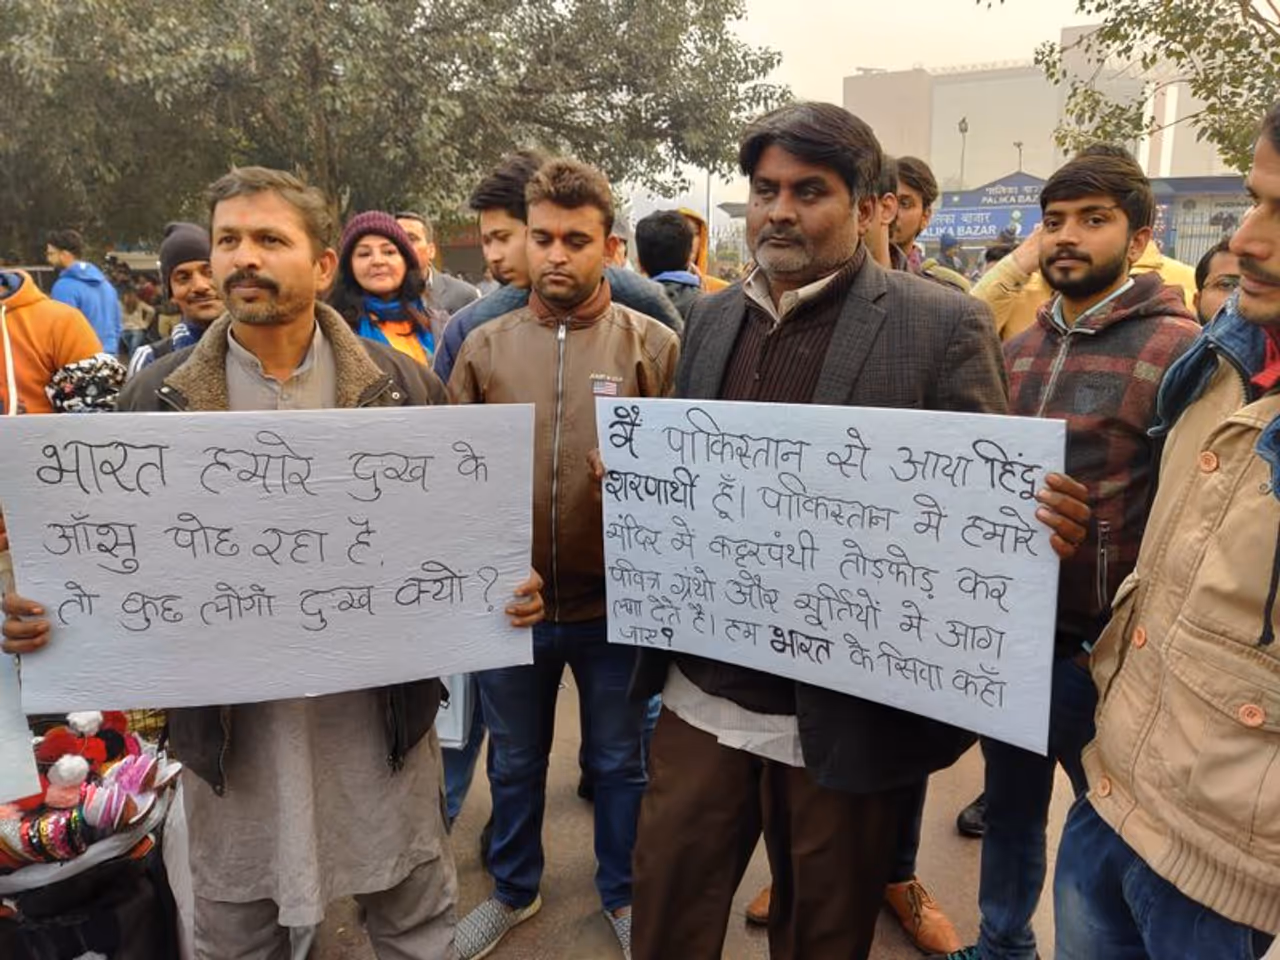 भारत हमारे दुख के
आँसु पोछ रहा है,
तो कुछ लोंगो दुःख क्यो?
मैं पाकिस्तान से आया हिंदू
शरणार्थी हूँ। पाकिस्तान में हमारे
मंदिर में कट्टरपंथी तोड़फोड़ कर
पवित्र ग्रंथो और मूर्तियों में आग
लगा देते है। हम भारत के सिवा कहाँ
जाए?
पालिका बाज़ार
PALIKA BAZAR
पालिका बाज़ार
PALIKA BAZAR